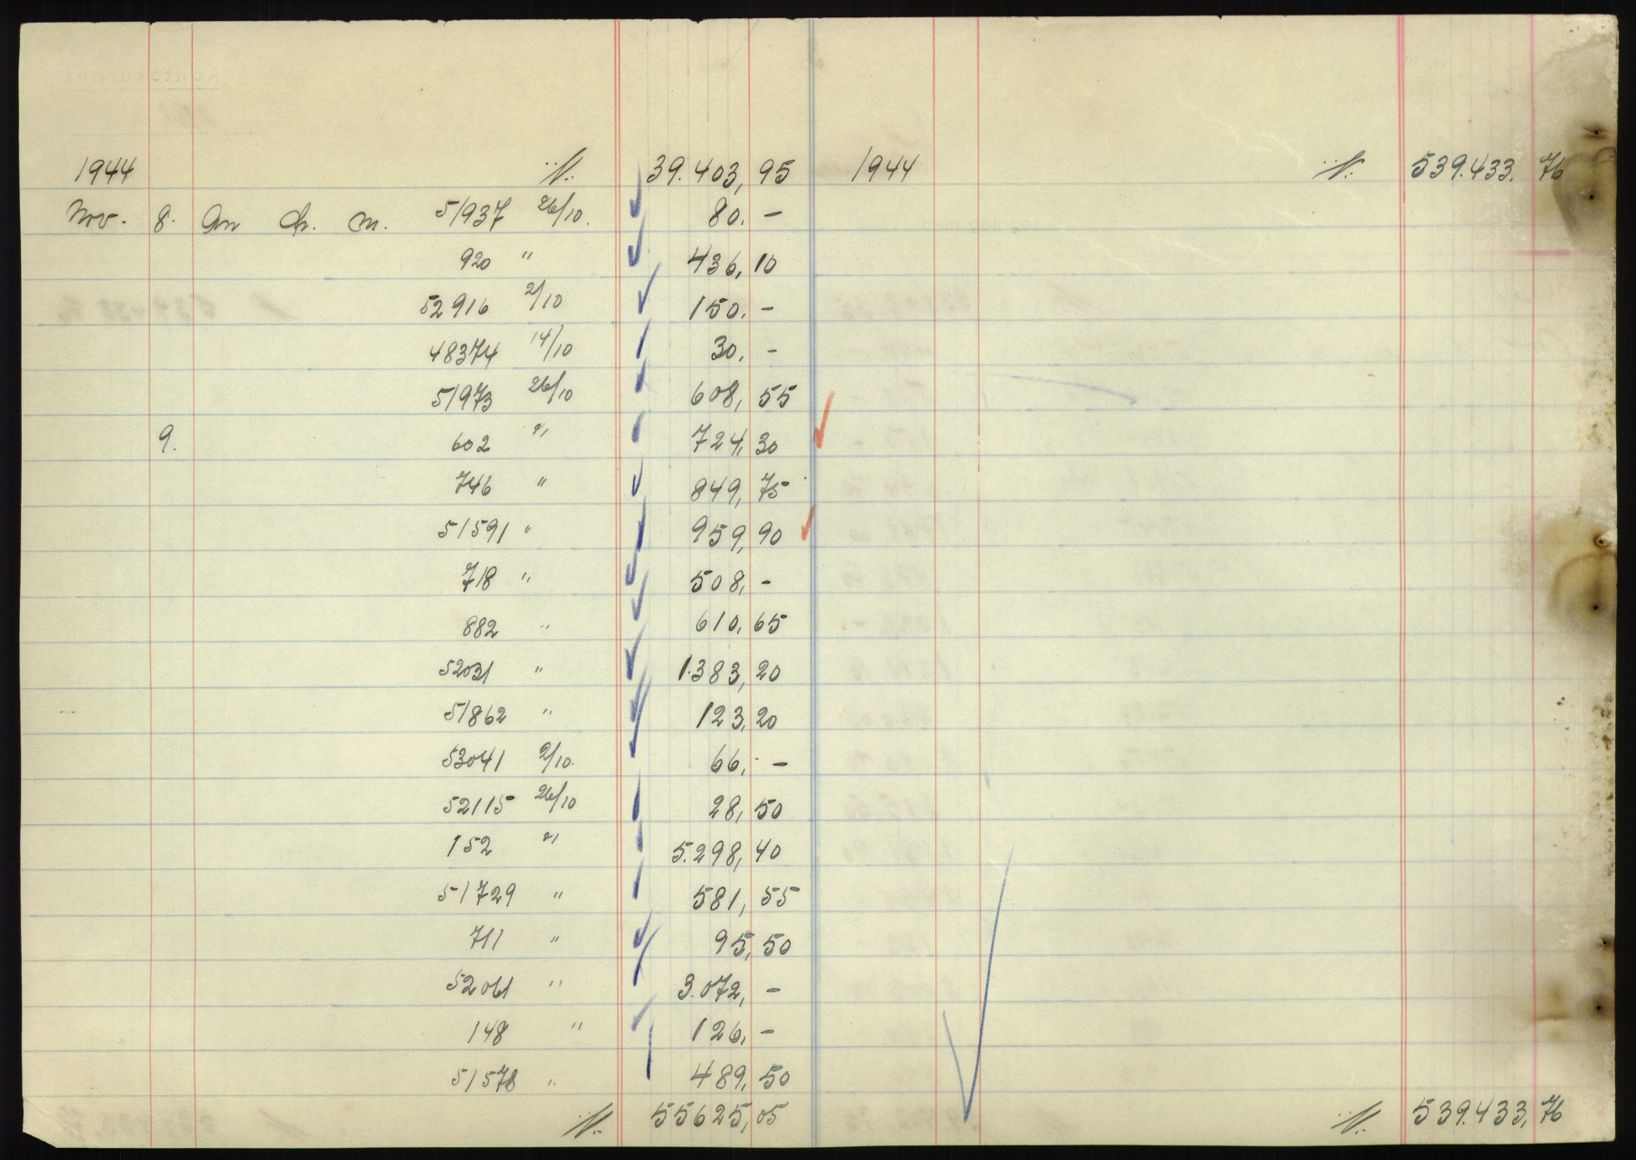 1944 ./. 39.403,95 1944 ./. 539.433.76
Nov. 8. An m. 51937 26/10. 80.-
920 " 436,10
52916 2/10 150.-
48374 14/10 30.-
51973 26/10 608,55
9. 602 " 724,30
746 " 849,75
51591 " 959,90
718 " 508,-
882 " 610,65
52031 " 1.383,20
51862 " 123,20
53041 2/10. 66,-
52115 26/10 28,50
152 " 5.298,40
51729 " 581,55
711 " 95,50
52061 " 3.072,-
148 " 126,-
51578 " 489,50
./. 55625,05 ./. 539.433,76